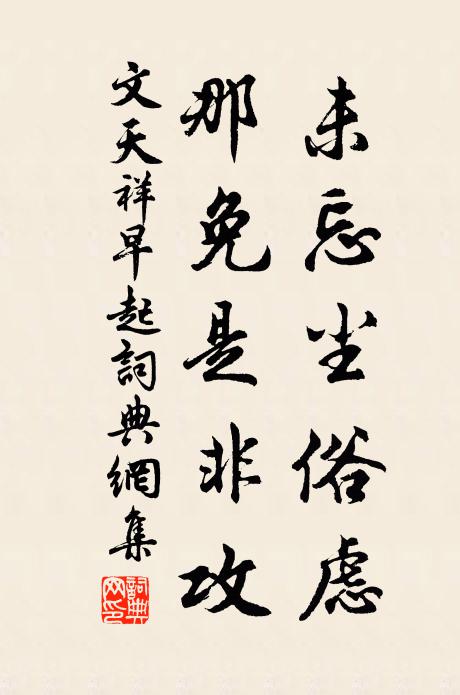 未忘尘俗虑
那免是非攻
文天祥早起詞典網集
詞典
网印